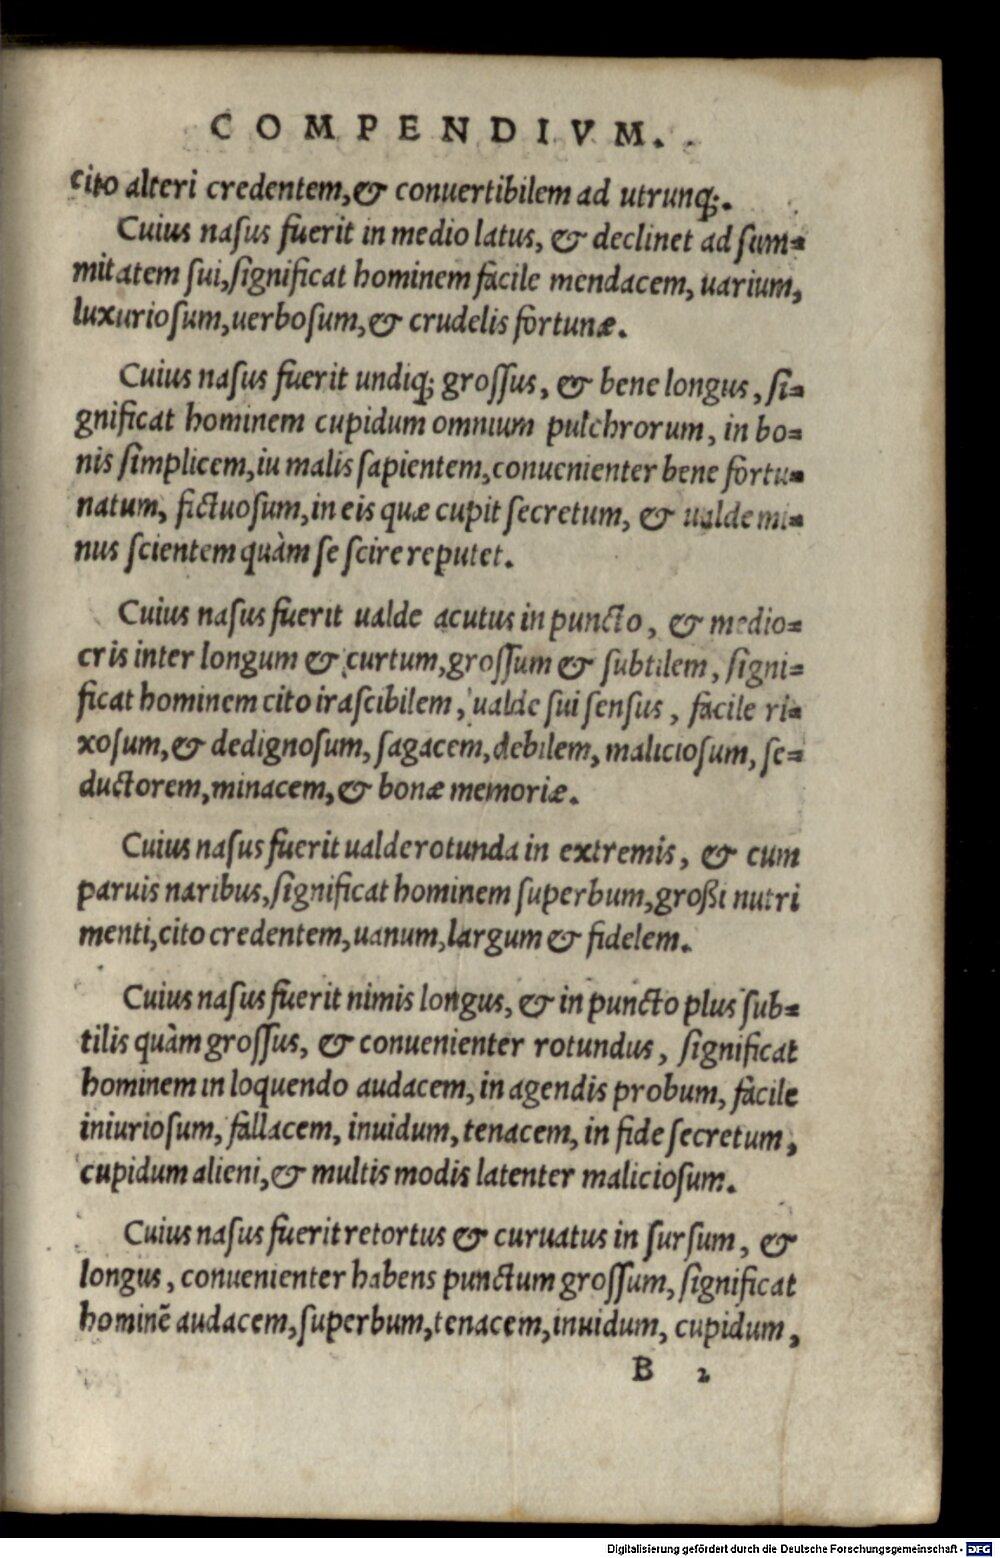 COMPENDIVM.
cito alteri credentem,& conuertibilem ad utrunq;.
Cuius naſus fuerit in medio latus, & declinet ad ſum=
mitatem ſui,ſignificat hominem facile mendacem, uarium,
luxurioſum,uerboſum,& crudelis fortunæ.
Cuius naſus fuerit undiq; groſſus, & bene longus, ſi=
gnificat hominem cupidum omnium pulchrorum, in bo=
nis ſimplicem,iu malis ſapientem,conuenienter bene fortu=
natum, fictuoſum,in eis quæ cupit ſecretum, & ualde mi=
nus ſcientem quàm ſe ſcire reputet.
Cuius naſus fuerit ualde acutus in puncto, & medio=
cris inter longum & curtum,groſſum & ſubtilem, ſigni=
ficat hominem cito iraſcibilem, ualde ſui ſenſus, facile ri=
xoſum,& dedignoſum, ſagacem,debilem, malicioſum, ſe=
ductorem,minacem,& bonæ memoriæ.
Cuius naſus fuerit ualde rotunda in extremis, & cum
paruis naribus,ſignificat hominem ſuperbum,großi nutri
menti,cito credentem,uanum,largum & fidelem.
Cuius naſus fuerit nimis longus, & in puncto plus ſub=
tilis quàm groſſus, & conuenienter rotundus, ſignificat
hominem in loquendo audacem, in agendis probum, facile
iniurioſum, fallacem, inuidum, tenacem, in fide ſecretum,
cupidum alieni,& multis modis latenter malicioſum.
Cuius naſus fuerit retortus & curuatus in ſurſum, &
longus, conuenienter habens punctum groſſum, ſignificat
hominē audacem,ſuperbum,tenacem,inuidum, cupidum,
B 2
Digitalisierung gefördert durch die Deutsche Forschungsgemeinschaft - DFG